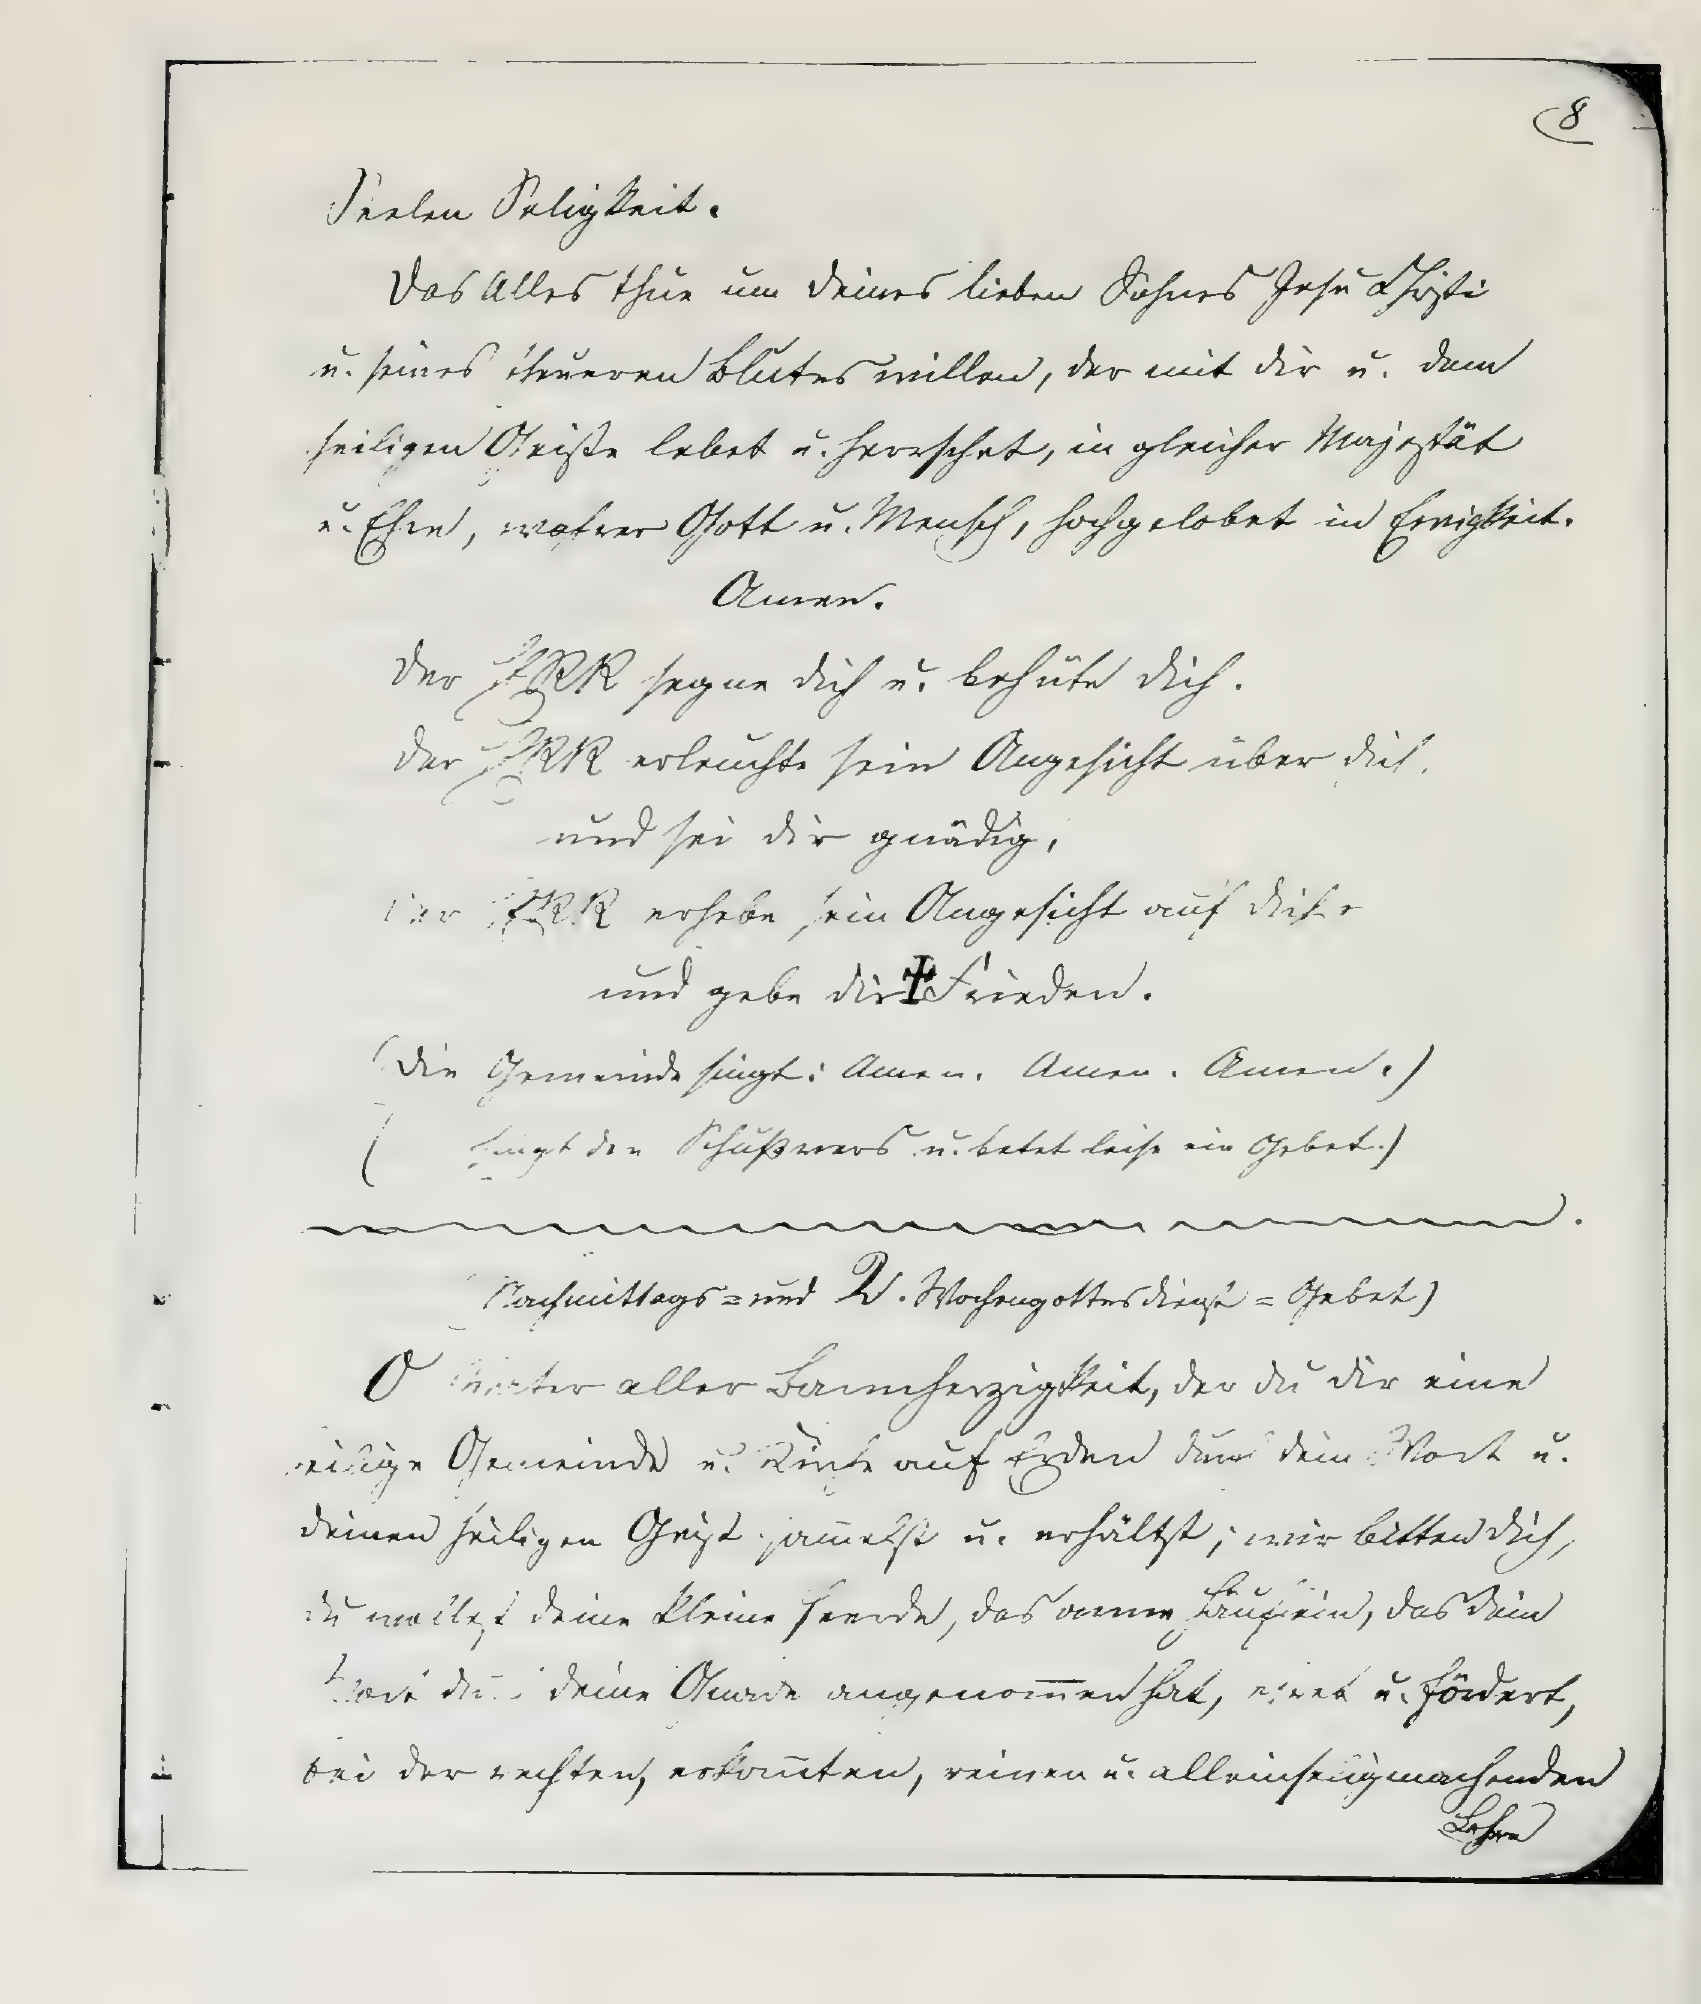 8
Seelen Seligkeit.
Das Alles thue um deines lieben Sohnes Jesu Christi
u. seines theueren Blutes willen, der mit dir u. dem
heiligen Geiste lebet u. herrschet, in gleicher Majestät
u. Ehre, wahrer Gott u. Mensch, hochgelobet in Ewigkeit.
Amen.
Der HERR segne dich u. behüte dich.
Der HERR erleuchte sein Angesicht über dich,
und sei dir gnädig,
der HERR erhebe sein Angesicht auf dich
und gebe dir ✝ Frieden.
(Die Gemeinde singt: Amen. Amen. Amen.)
( singt den Schlußvers u. betet leise ein Gebet.)
Nachmittags= und W. Wochengottesdienst = Gebet)
O Vater aller Barmherzigkeit, der du dir eine
heilige Gemeinde u. Kirche auf Erden durch dein Wort u.
deinen heiligen Geist sam̄elst u. erhältst; wir bitten dich,
du wollest deine kleine Heerde, das arme Häuflein, das dein
Wort durch deine Gnade angenom̄en hat, ehret u. fördert,
bei der rechten, erkan̄ten, reinen u. alleinseligmachenden
Lehre